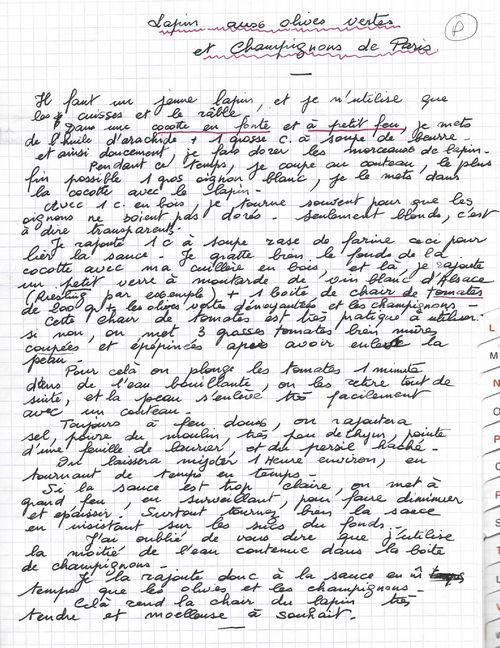 Lapin aux olives vertes
et Champignons de Paris
P
Il faut un jeune lapin, et je n'utilise que
les cuisses et le râble.
Dans une cocotte en fonte et à petit feu, je mets
de l'huile d'arachide + 1 grosse c. à soupe de beurre -
et ainsi doucement, je fais dorer les morceaux de lapin.
Pendant ce temps, je coupe au couteau, le plus
fin possible 1 gros oignon blanc, je le mets dans
la cocotte avec le lapin -
Avec 1 c. en bois, je tourne souvent pour que les
oignons ne soient pas dorés - seulement blonds, c'est
à dire transparents.
Je rajoute 1 c à soupe rase de farine ceci pour
lier la sauce - Je gratte bien le fond de la
cocotte avec ma cuillère en bois, et là, je rajoute
un petit verre à moutarde de vin blanc d'Alsace
(Riesling par exemple) + 1 boîte de chair de tomates
de 200 g + les olives vertes dénoyautées et les champignons -
Cette chair de tomates est très pratique à utiliser.
si non, on met 3 grosses tomates bien mûres,
coupées et épépinées après avoir enlevé la
peau -
Pour cela on plonge les tomates 1 minute
dans de l'eau bouillante, on les retire tout de
suite, et la peau s'enlève très facilement
avec un couteau -
Toujours à feu doux, on rajoutera
sel, poivre du moulin, très peu de thym, pointe
d'une feuille de laurier et du persil haché -
On laissera mijoter 1 Heure environ, en
tournant de temps en temps -
Si la sauce est trop claire, on met à
grand feu, en surveillant, pour faire diminuer
et épaissir. Surtout tournez bien la sauce
en insistant sur les sucs du fond -
J'ai oublié de vous dire que j'utilise
la moitié de l'eau contenue dans la boîte
de champignons -
Je la rajoute donc à la sauce en m̂
temps que les olives et les champignons -
Celà rend la chair du lapin très
tendre et moelleuse à souhait.